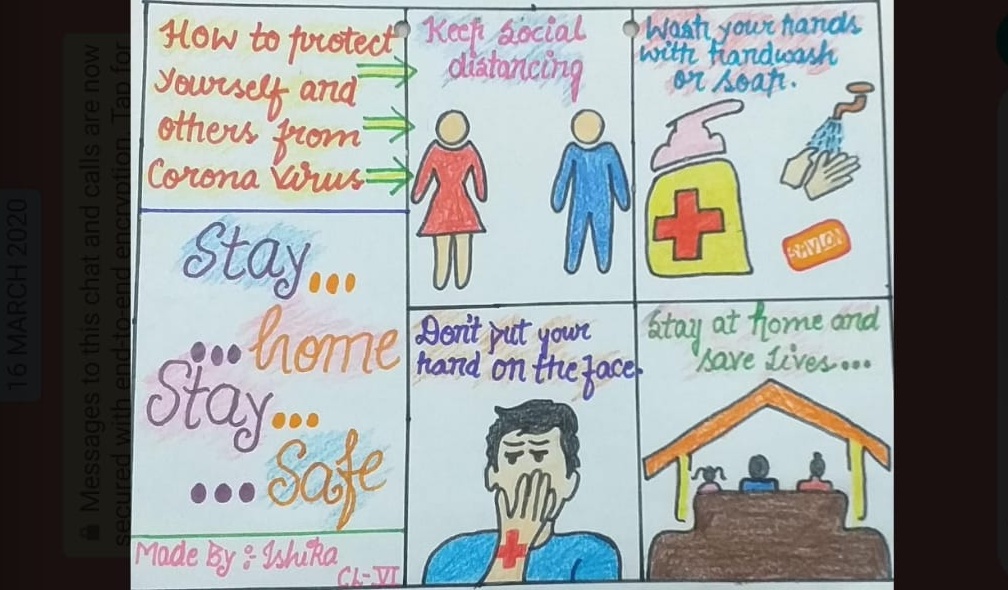 How to protect
Yourself and
others from
Corona Virus
Stay...
...home
Stay...
...Safe
Made By : Ishika
CL-VI
Keep Social
distancing
Wash your hands
with handwash
or soap.
SAVLON
Don't put your
hand on the face.
Stay at home and
save Lives...
16 MARCH 2020
Messages to this chat and calls are now
secured with end-to-end encryption. Tap for